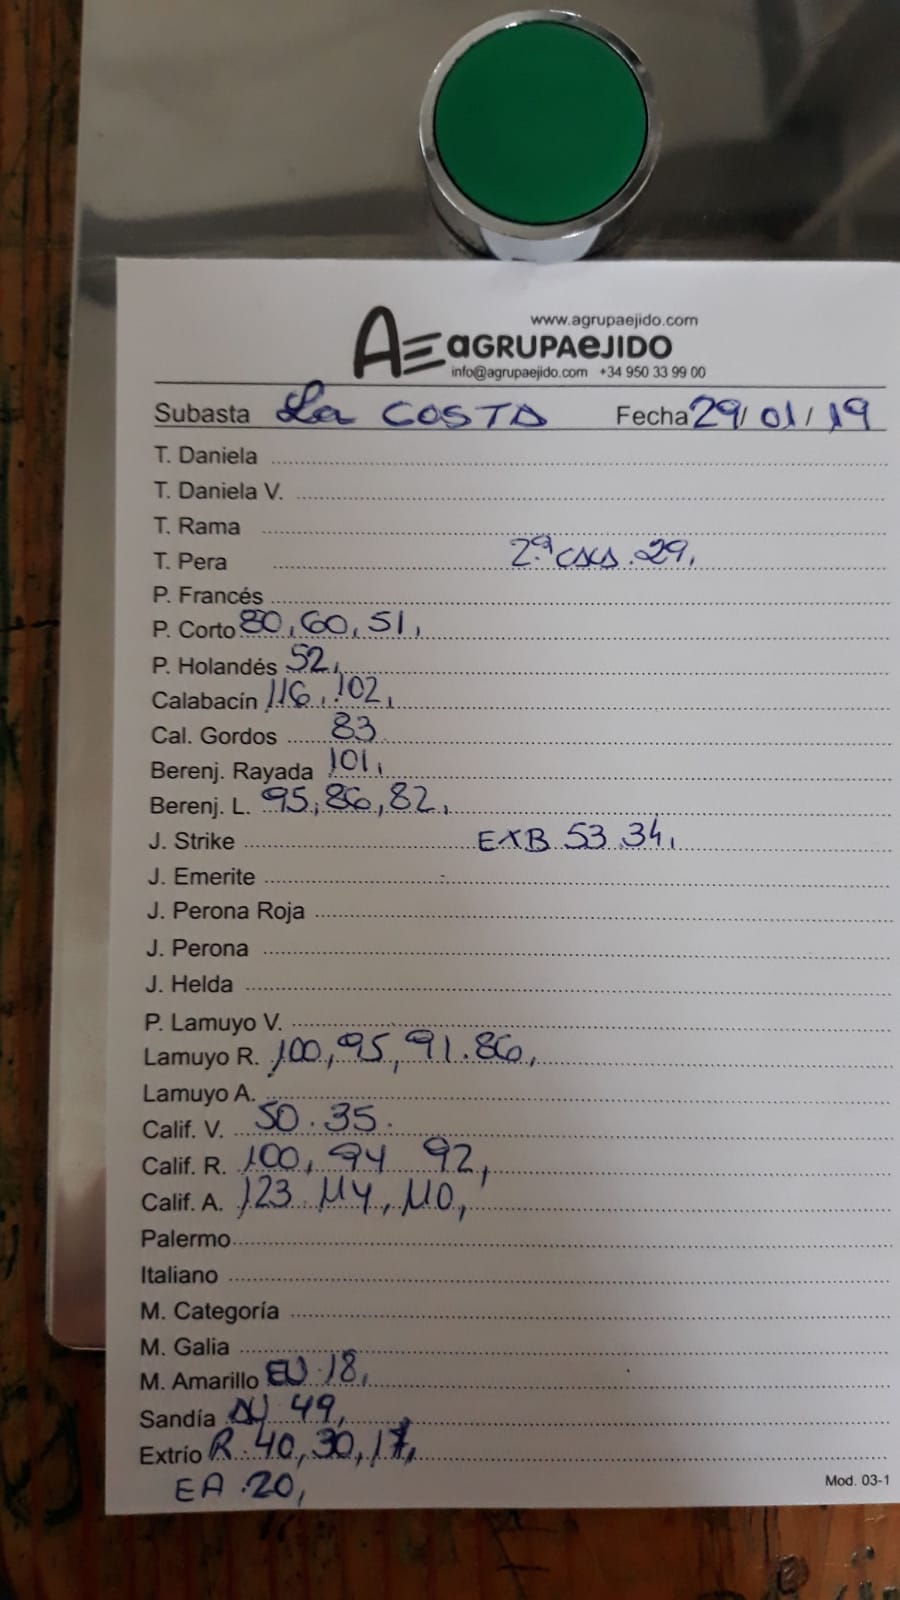 www.agrupaejido.com
AE aGRUPAeJIDO
info@agrupaejido.com +34 950 33 99 00
Subasta La COSTA Fecha 29/ 01/ 19
T. Daniela
T. Daniela V.
T. Rama
T. Pera 2ª 29,
P. Francés
P. Corto 80, 60, 51,
P. Holandés 52,
Calabacín 116, 102,
Cal. Gordos 83
Berenj. Rayada 101,
Berenj. L. 95, 86, 82,
J. Strike EXB 53 34,
J. Emerite
J. Perona Roja
J. Perona
J. Helda
P. Lamuyo V.
Lamuyo R. 100, 95, 91. 86,
Lamuyo A.
Calif. V. 50. 35.
Calif. R. 100, 94 92,
Calif. A. 123 114, 110,
Palermo
Italiano
M. Categoría
M. Galia
M. Amarillo EV 18,
Sandía 49,
Extrío R. 40, 30, 17,
EA. 20,
Mod. 03-1